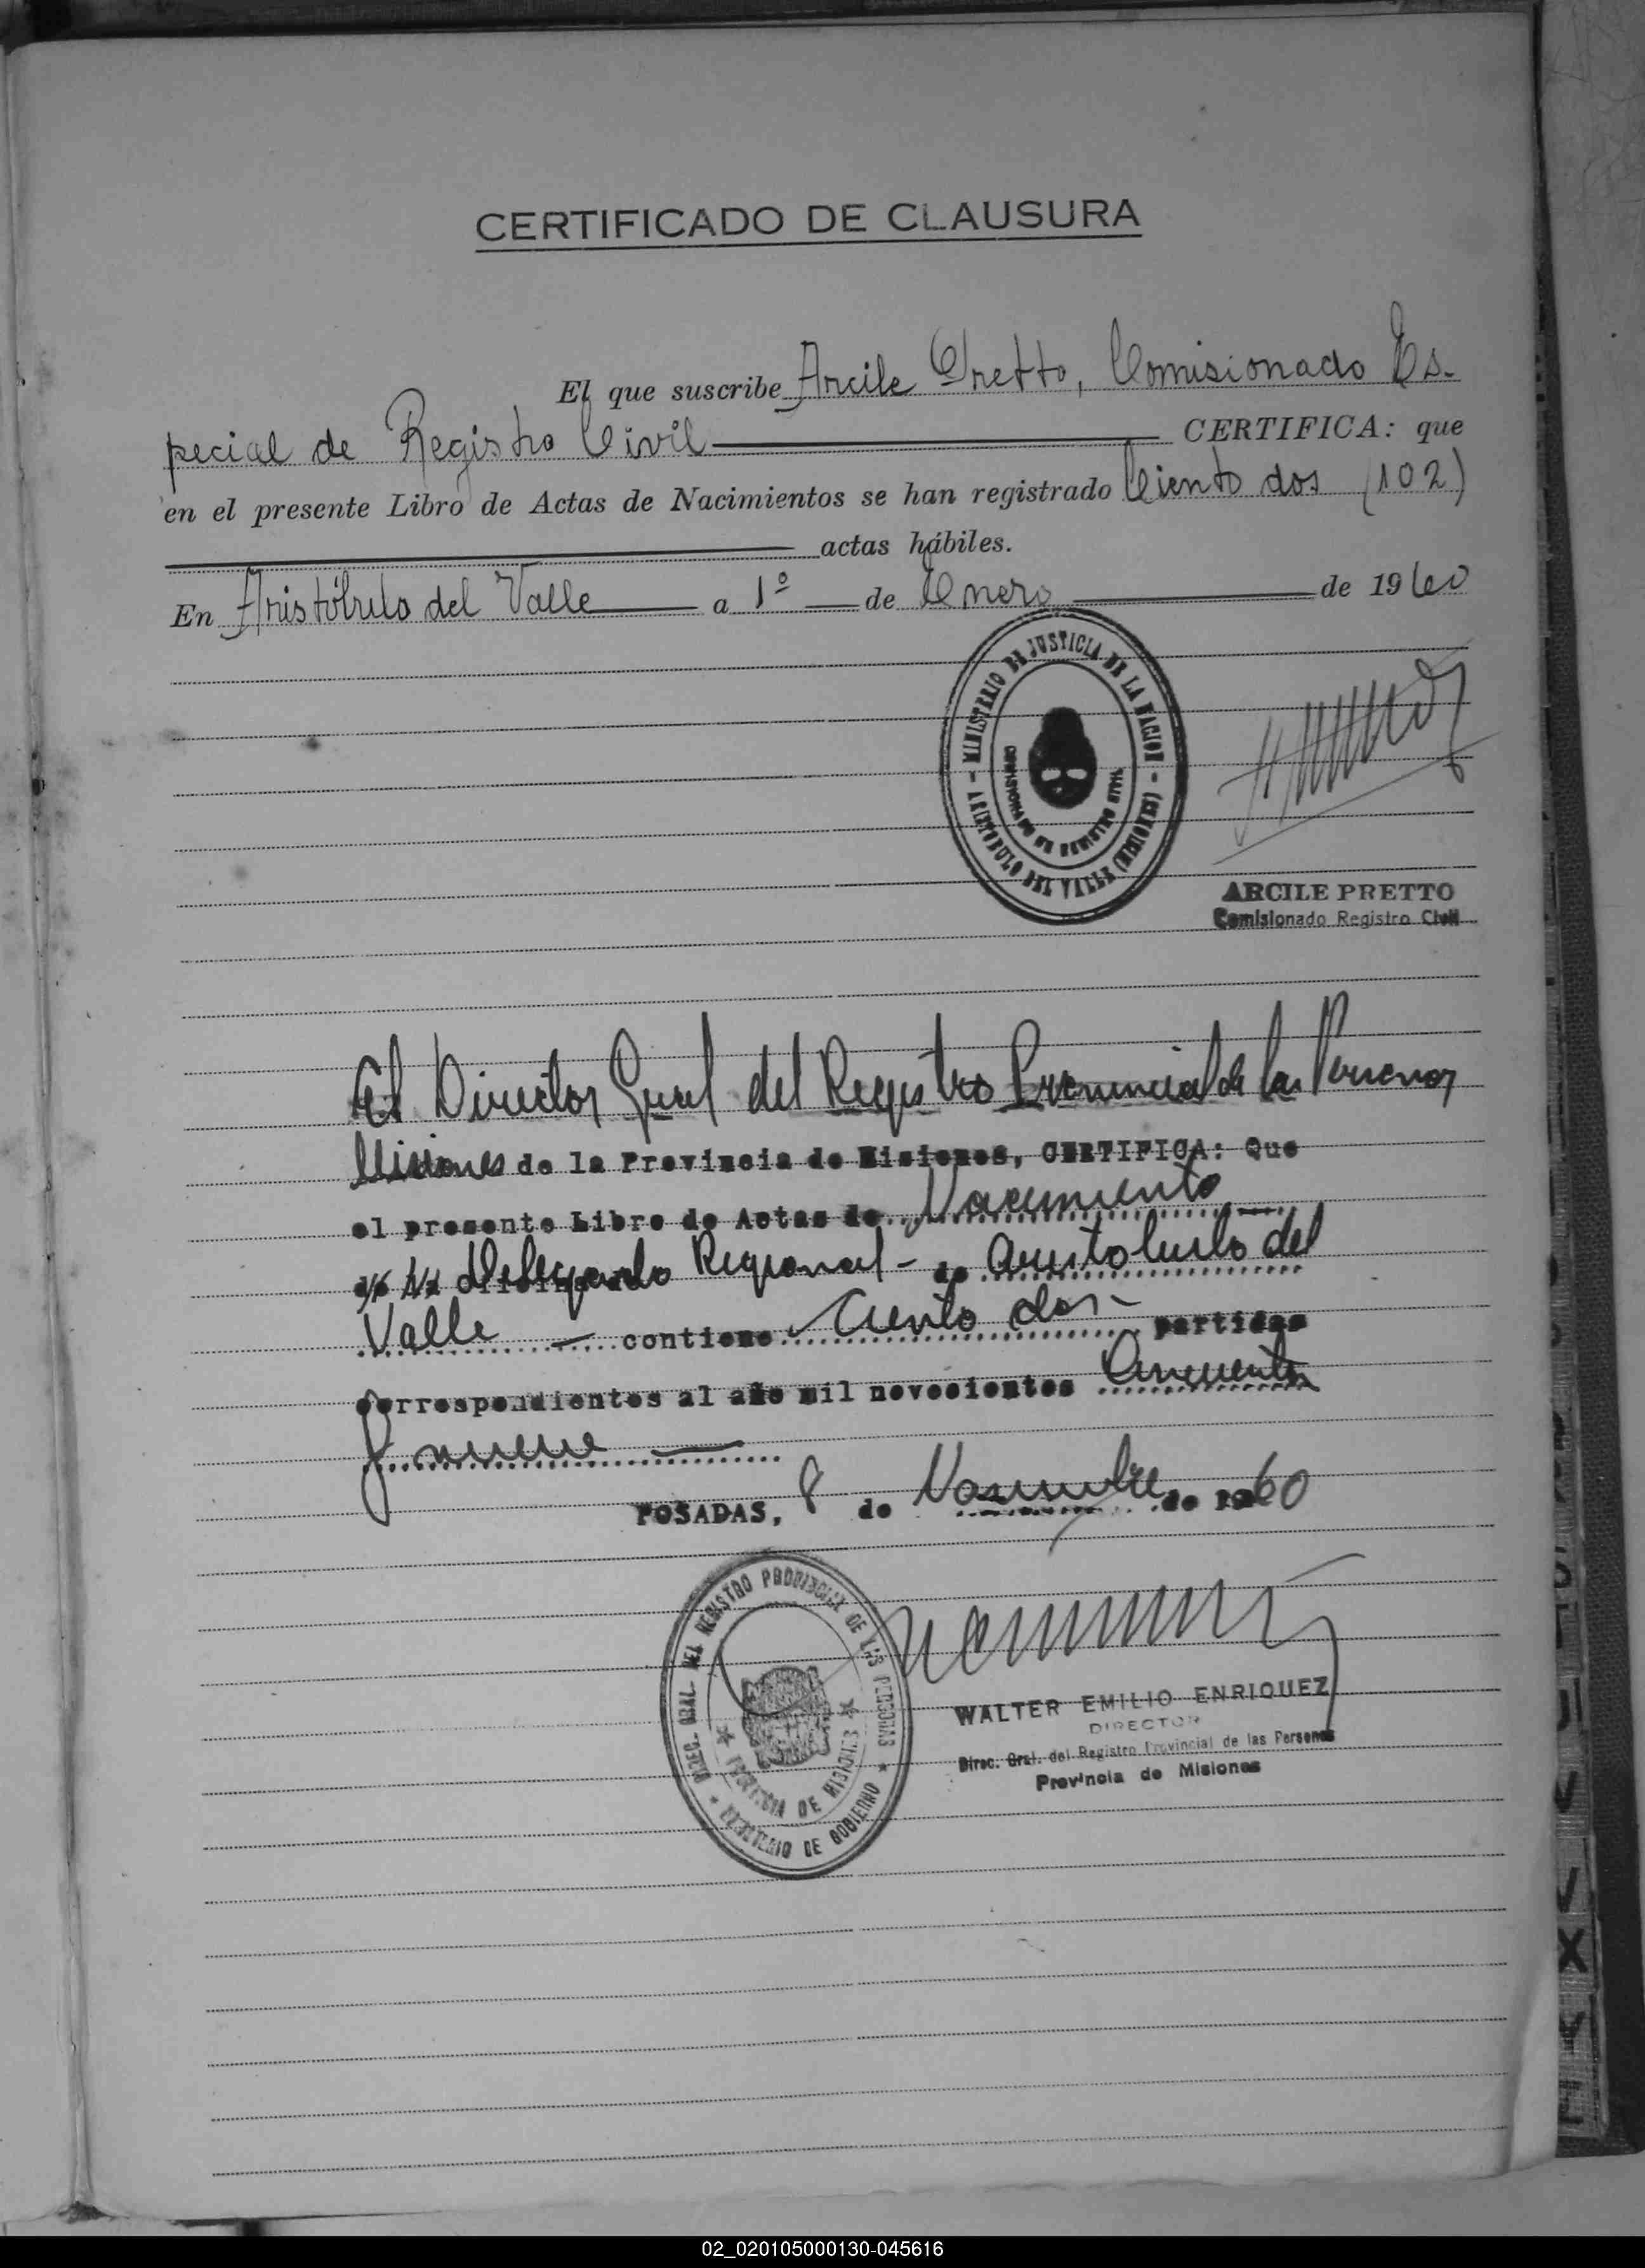 CERTIFICADO DE CLAUSURA
El que suscribe Arcile Pretto, Comisionado Es-
pecial de Registro Civil CERTIFICA: que
en el presente Libro de Actas de Nacimientos se han registrado Ciento dos (102)
actas hábiles.
En Aristóbulo del Valle a 1º de Enero de 1960
MINISTERIO DE JUSTICIA DE LA NACION
ARISTOBULO DEL VALLE (MISIONES)
ARCILE PRETTO
Comisionado Registro Civil
El Director Gral del Registro Provincial de las Personas
Misiones de la Provincia de Misiones, CERTIFICA: Que
el presente Libro de Actas de Nacimiento
Delegado Regional - de Aristobulo del
Valle contiene Ciento dos partidas
correspondientes al año mil novecientos Cincuenta
y nueve
POSADAS, 8 de Noviembre de 1960
DIREC. GRAL. DEL REGISTRO PROVINCIAL DE LAS PERSONAS
PROVINCIA DE MISIONES
MINISTERIO DE GOBIERNO
WALTER EMILIO ENRIQUEZ
DIRECTOR
Direc. Gral. del Registro Provincial de las Personas
Provincia de Misiones
02_020105000130-045616